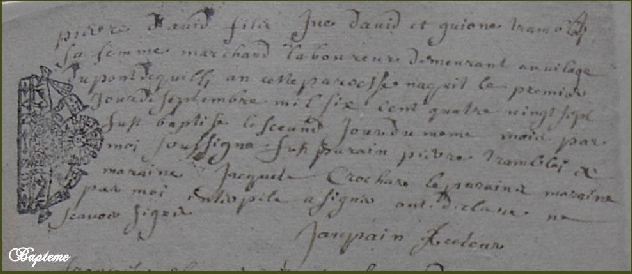 pierre david filz Jac david et guione tramo
sa femme marchand laboureur demeurant au vilage
du pontdequilli an cette paroesse naquit le premier
Jour de septembre mil six cent quatre vingt sept
fust baptise le second Jour du meme mois par
moi soussigne fust parain pierre tramblei &
maraine Jacquet Crochar le parain & maraine
par moi interpele a signer ont declare ne
scavoir signer
Recteur
Bapteme